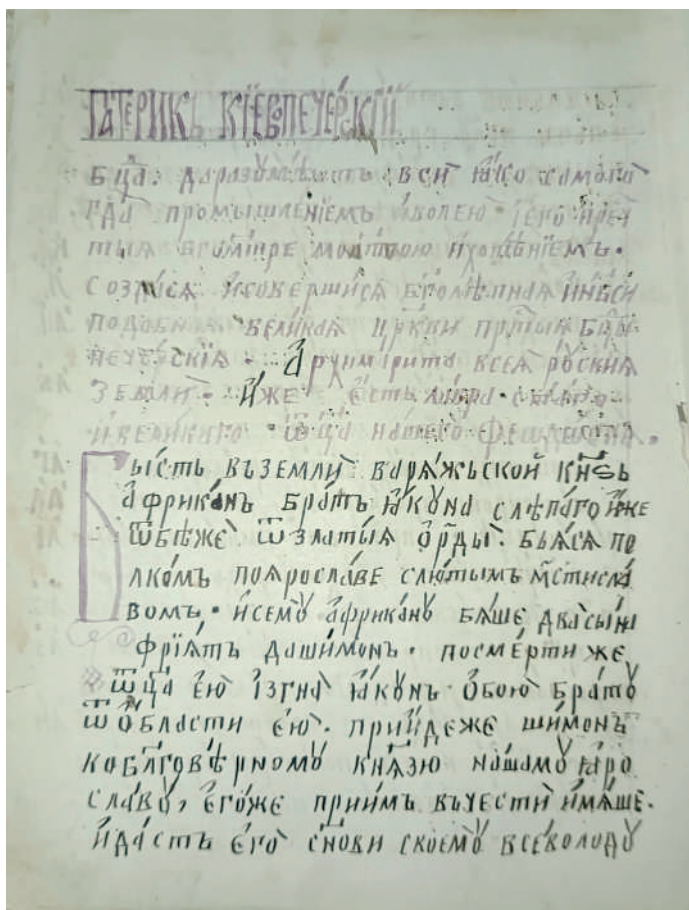 Патерикъ Кїевопече́рскїй
бц҃а. да разꙋмѣютъ всѝ ꙗ́ко самого
гд҃а промышле́нїемъ и҆ волею
тыя молитвою и҆
созда́ся и҆ соверши́ся бг҃олѣпная и҆ нб҃си
подобная вели́кая цр҃кви прч҃тыя бц҃ы
пече́рскїя. А҆рхимари́та всея̀ рꙋ́ския
землѝ. и҆́же є҆сть ла́вра ст҃аго
и҆ вели́каго ѿц҃а на́шего феѡдосїа.
Бы́сть въ землѝ варѧ́жьской кн҃ѕь
а҆фрика́нъ бра́тъ ꙗ҆ко́уна слѣпа́го и҆́же
ѿбѣжѐ ѿ златы́ѧ ѻ҆рды̀. бьяся по
лко́мъ по ꙗросла́ве с лю́тымъ мстисла́
вомъ. и҆ семꙋ̀ а҆фрика́нꙋ бѧ́ше два̀ сы́на
фрїѧ́тъ да ши́монъ. по сме́рти же
ѿц҃а є҆ю̀ і҆згна̀ ꙗ҆кꙋнъ ѻ҆бою̀ бра́тꙋ
ѿ ѻ҆́бласти є҆ю̀. прїи́де же ши́монъ
ко бл҃говѣ́рномꙋ кнѧ́зю на́шамꙋ ꙗ҆ро
сла́вꙋ, є҆го́же приимъ въ че́сти и҆мѧ́ше.
и҆ да́стъ є҆го̀ сн҃ови своємꙋ̀ все́володꙋ